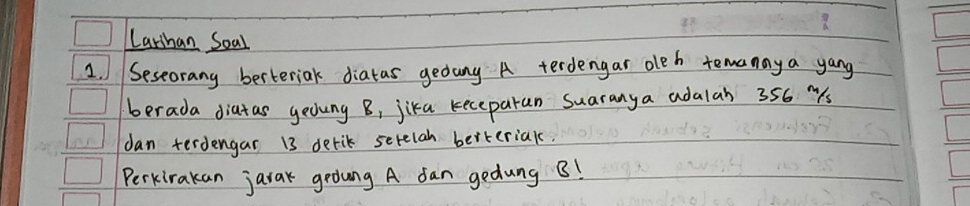 Latihan Soal
1. Seseorang berteriak diatas gedung A terdengar oleh temannya yang
berada diatas gedung B, jika kecepatan suaranya adalah 356 m/s
dan terdengar 13 detik setelah berteriak.
Perkirakan jarak gedung A dan gedung B!